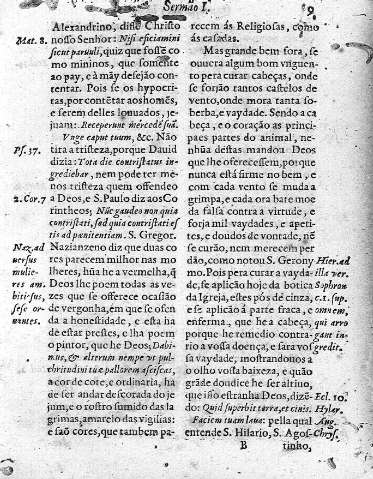 Sermão I.
9
Alexandrino, disse Christo
Mat. 8. nosso Senhor: Nisi efficiamini
sicut paruuli, quiz que fosse como
mo mininos, que somente
ao pay, e à mãy desejão contentar
tentar. Pois se os hypocritas
tas, por contẽtar aos homẽs,
e serem delles louuados, jejuam
juam: Receperunt mercedẽ suã.
Vnge caput tuum, &c. Não
Ps. 37. tira a tristeza, porque Dauid
dizia: Tota die contristatus ingrediebar
grediebar, nem pode ter menos
nos tristeza quem offendeo
2. Cor. 7 a Deos, e S. Paulo diz aos Corintheos
rintheos; Nũc gaudeo non quia
contristati, sed quia contristati estis
tis ad pœnitentiam. S. Gregor.
Naz. ad Nazianzeno diz que duas cores
uersus res parecem milhor nas molheres
mulie- lheres, hũa he a vermelha, q̃
res am. Deos lhe poem todas as vezes
bitiosius, zes que se offerece ocasião
sese or- de vergonha, em que se ofenda
nantes. da a honestidade, e esta ha
de estar prestes, e lha poem
o pintor, que he Deos; Dabimus
nus, & alterum nempe ut pulchritudini
chritudini tuæ pallorem asciscas,
a cor de core, e ordinaria, ha
de ser andar descorada do jejum
jum, e o rostro sumido das lagrimas
grimas, amarelo das vigilias:
e saõ cores, que tambem parecem
recem ás Religiosas, como
ás casadas.
Mas grande bem fora, se
ouuera algum bom vnguento
to pera curar cabeças, onde
se forjão tantos castelos de
vento, onde mora tanta soberba
berba, e vaydade. Sendo a cabeça
beça, e o coração as principaes
paes partes do animal, nenhũa
hũa destas mandou Deos
que lhe offerecessem, porque
nunca está firme no bem, e
com cada vento se muda a
grimpa, e cada ora bate moeda
da falsa contra a virtude, e
forja mil vaydades, e apetites
tes, e doudos de vontade, nẽ
se curão, nem merecem perdão
dão, como notou S. Geronymo Hier. ad
mo. Pois pera curar a vaydade illa ver.
de, se aplicão hoje da botica Sophron
da Igreja, estes pós de cinza, c. 1. sup.
e se aplicão á parte fraca, e omnem,
enferma, que he a cabeça, qui arro
porque he remedio contrario gant in
rio a vossa doença, e sara vossa gredit.
sa vaydade, mostrandonos a
o olho vossa baixeza, e quão
grãde doudice he ser altiuo,
que isso estranha Deos, dizẽdo Ecl. 10.
do: Quid superbit terra, et cinis. Hylar.
Faciem tuam laua: pella qual Aug.
entende S. Hilario, S. Agos- Chrys.
B
tinho,